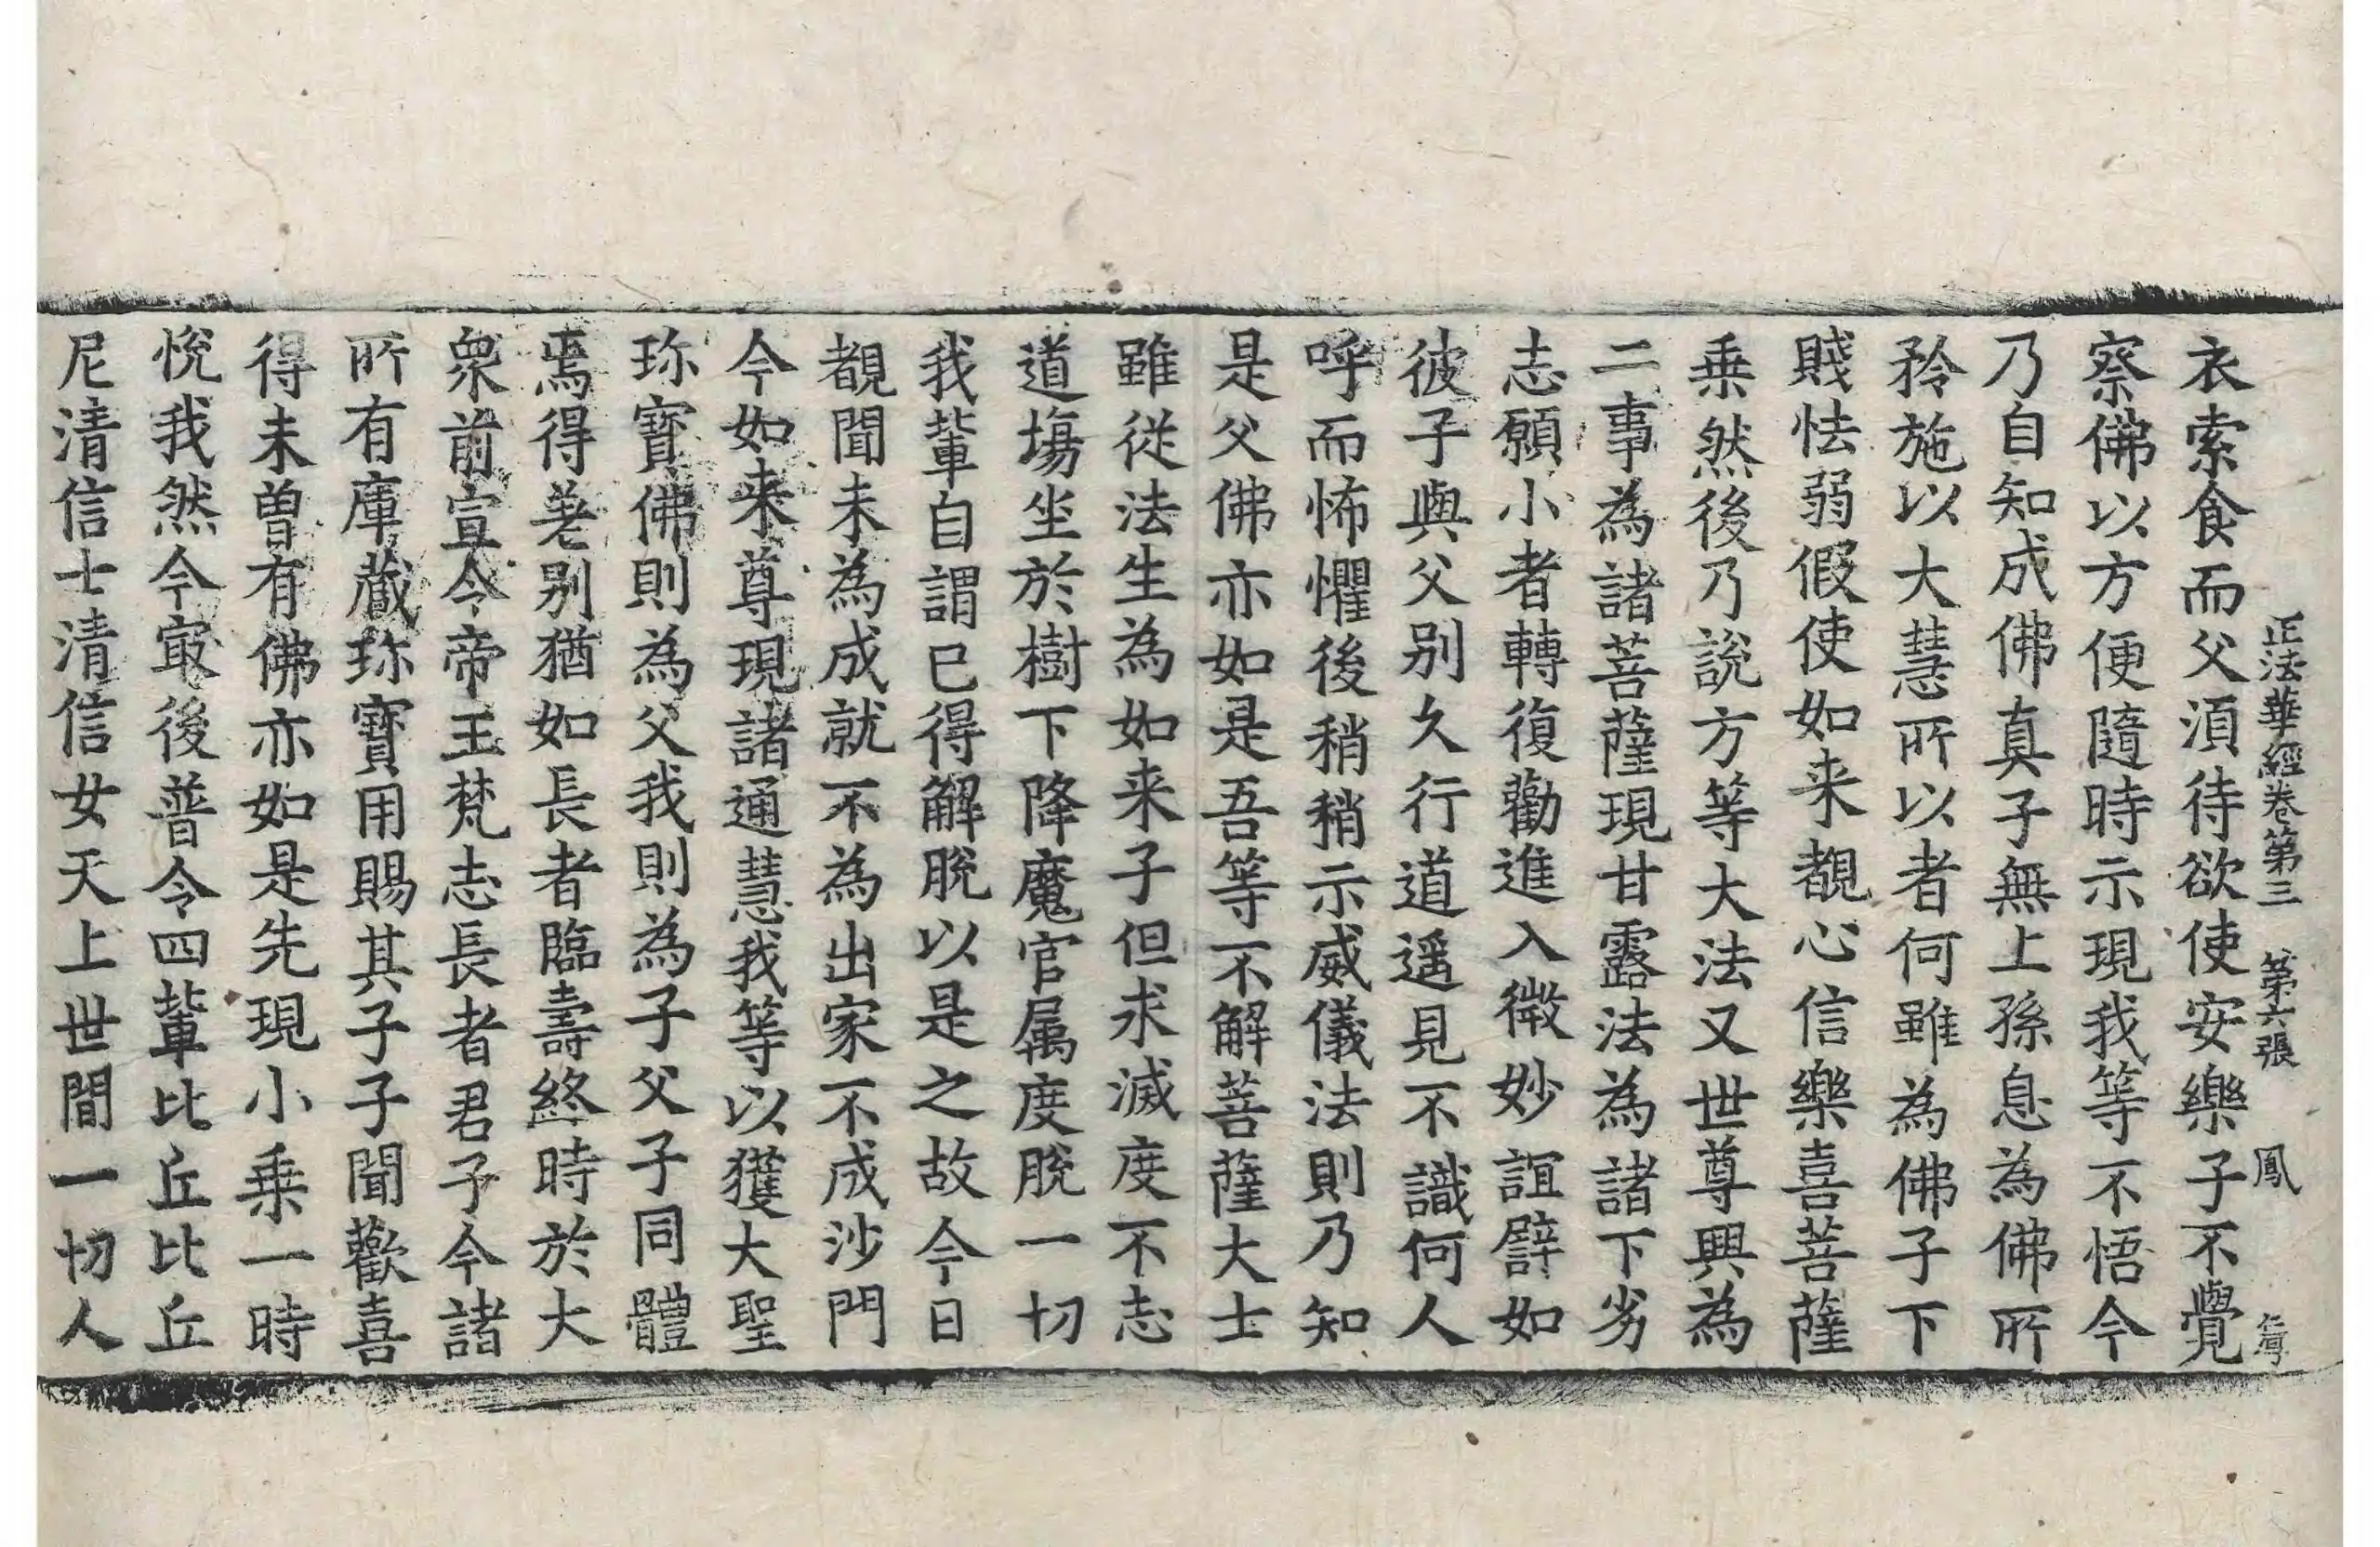 正法華經卷第三 第六張 鳳
衣索食而父湏待欲使安樂子不覺
察佛以方便隨時示現我等不悟今
乃自知成佛真子無上孫息為佛所
矜施以大慧所以者何雖為佛子下
賤怯弱假使如来覩心信樂喜菩薩
乗然後乃說方等大法又世尊興為
二事為諸菩薩現甘露法為諸下劣
志願小者轉復勸進入微妙誼譬如
彼子與父別久行道遥見不識何人
呼而怖懼後稍稍示威儀法則乃知
是父佛亦如是吾等不解菩薩大士
雖從法生為如来子但求滅度不志
道塲坐於樹下降魔官属度脫一切
我輩自謂已得解脫以是之故今日
覩聞未為成就不為出家不成沙門
今如来尊現諸通慧我等以獲大聖
珎寶佛則為父我則為子父子同體
焉得差别猶如長者臨壽終時於大
衆前宣令帝王梵志長者君子今諸
所有庫藏珎寶用賜其子子聞歡喜
得未曽有佛亦如是先現小乗一時
悅我然今㝡後普令四輩比丘比丘
尼清信士清信女天上世間一切人